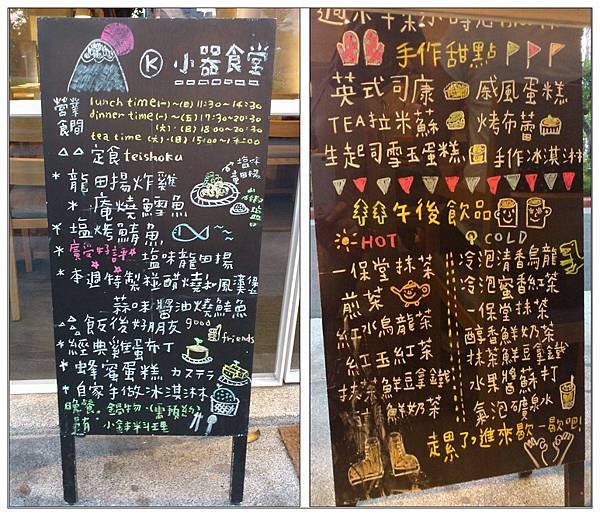 K 小器食堂
營業時間 lunch time (一)~(日) 11:30~14:30
dinner time (一)~(五) 17:30~20:30
(六)、(日) 18:00~20:30
tea time (六)、(日) 15:00~17:00
定食 teishoku
* 龍田揚炸雞
* 庵燒鱈魚
* 塩烤鯖魚
* 廣受好評 塩味龍田揚
* 本週特製 椪醋燒和風漢堡
蒜味醬油燒鱸魚
飯後好朋友 good friends
* 經典雞蛋布丁
* 蜂蜜蛋糕 カステラ
* 自家手做冰淇淋
晚餐 鍋物
小缽料理
手作甜點
英式司康 戚風蛋糕
TEA拉米蘇 烤布蕾
生起司雪玉蛋糕 手作冰淇淋
午後飲品
HOT
一保堂抹茶
煎茶
紅水烏龍茶
紅玉紅茶
抹茶鮮豆拿鐵
鮮奶茶
COLD
冷泡清香烏龍
冷泡蜜香紅茶
一保堂抹茶
醇香鮮奶茶
抹茶鮮豆拿鐵
水果醬蘇打
氣泡礦泉水
走累了,進來歇一歇吧!